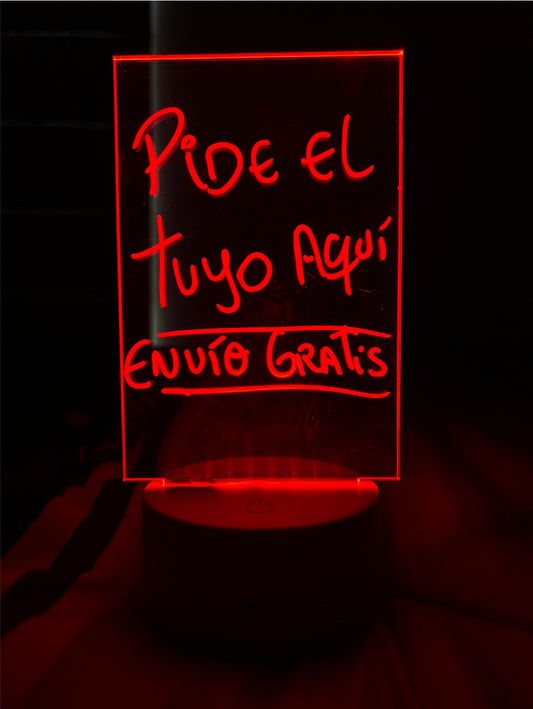 PiDE EL
tuyo AQUÍ
ENVÍO GRATiS